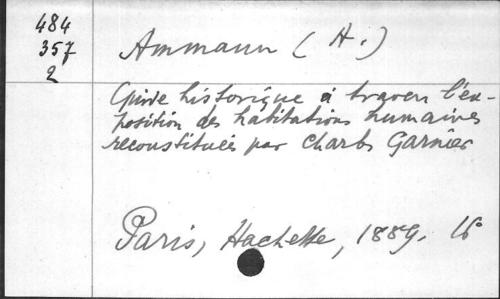 484
357
2
Ammann (H.)
Guide historique à travers l'ex-
position des habitations humaines
reconstituées par Charles Garnier
Paris, Hachette, 1889. 16°